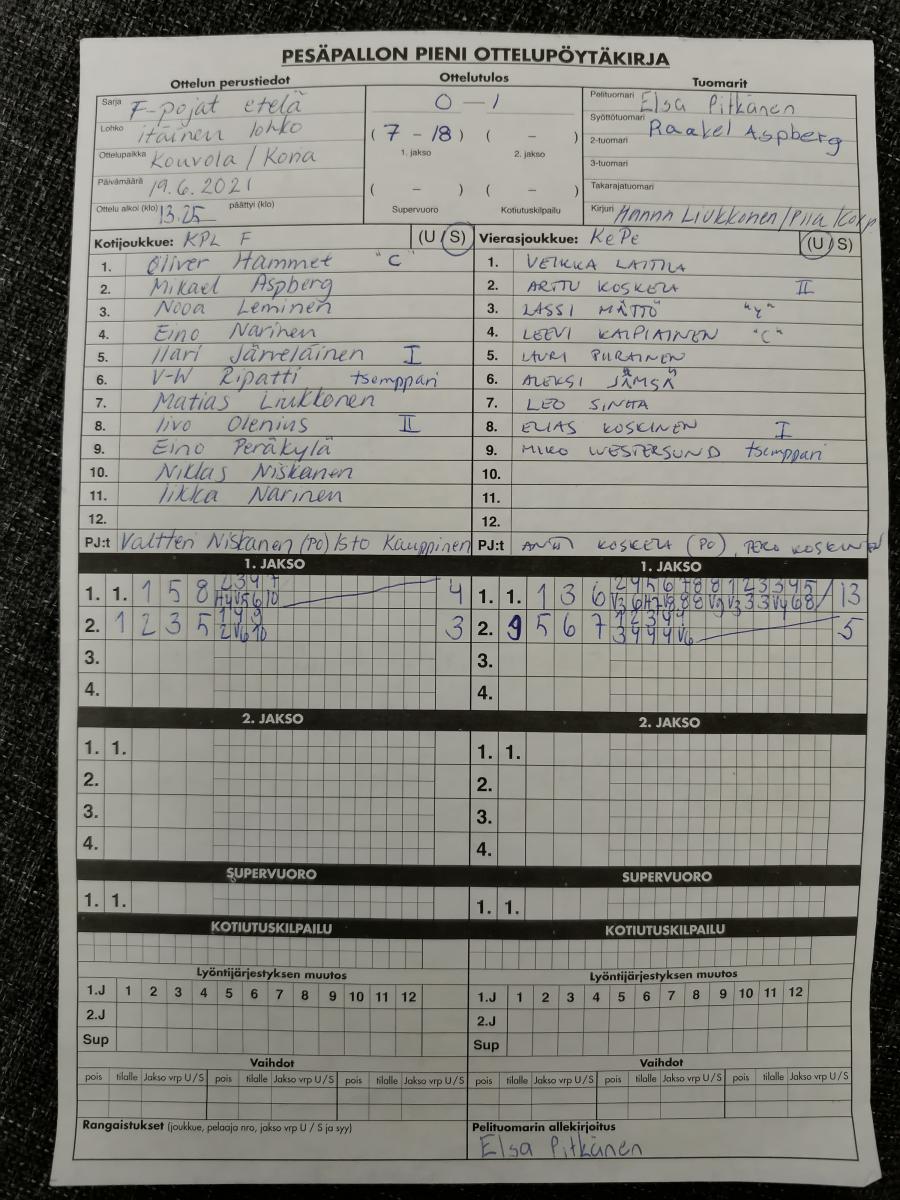 PESÄPALLON PIENI OTTELUPÖYTÄKIRJA
Ottelun perustiedot
Sarja F-pojat etelä
Lohko itäinen lohko
Ottelupaikka Kouvola / Koria
Päivämäärä 19.6.2021
Ottelu alkoi (klo) 13.25 päättyi (klo)
Ottelutulos
0 – 1
( 7 – 18 ) ( – )
1. jakso 2. jakso
( – ) ( – )
Supervuoro Kotiutuskilpailu
Tuomarit
Pelituomari Elsa Pitkänen
Syöttötuomari Raakel Aspberg
2-tuomari
3-tuomari
Takarajatuomari
Kirjuri Hanna Liukkonen / Piia
Kotijoukkue: KPL F (U / S)
1. Oliver Hammet "C"
2. Mikael Aspberg
3. Nooa Leminen
4. Eino Narinen
5. Ilari Järveläinen I
6. V-W Ripatti tsemppari
7. Matias Liukkonen
8. Iivo Olenius II
9. Eino Peräkylä
10. Niklas Niskanen
11. Iikka Narinen
12.
PJ:t Valtteri Niskanen (PO) Isto Kauppinen
Vierasjoukkue: KePe (U / S)
1. VEIKKA LATTILA
2. ARTTU KOSKELA II
3. LASSI MÄTTÖ "Y"
4. LEEVI KAIPIAINEN "C"
5. LAURI PIIRAINEN
6. ALEKSI JÄMSÄ
7. LEO
8. ELIAS KOSKINEN I
9. MIKO WESTERSUND tsemppari
10.
11.
12.
PJ:t ANTTI KOSKELA (PO), KOSKINEN
1. JAKSO
1. 1. 1 5 8 2 3 4 7 4
H4 V5 6 10
2. 1 2 3 5 1 4 9 3
2 V6 10
3.
4.
2. JAKSO
1. 1.
2.
3.
4.
SUPERVUORO
1. 1.
KOTIUTUSKILPAILU
Lyöntijärjestyksen muutos
1.J 1 2 3 4 5 6 7 8 9 10 11 12
2.J
Sup
Vaihdot
pois tilalle Jakso vrp U / S pois tilalle Jakso vrp U / S pois tilalle Jakso vrp U / S
Rangaistukset (joukkue, pelaaja nro, jakso vrp U / S ja syy)
1. JAKSO
1. 1. 1 3 6 2 4 5 6 7 8 8 1 2 3 3 4 5 13
V3 6 H7 V8 8 8 V9 V3 3 3 V4 6 8
2. 9 5 6 7 1 2 3 4 4 5
3 4 4 4 V6
3.
4.
2. JAKSO
1. 1.
2.
3.
4.
SUPERVUORO
1. 1.
KOTIUTUSKILPAILU
Lyöntijärjestyksen muutos
1.J 1 2 3 4 5 6 7 8 9 10 11 12
2.J
Sup
Vaihdot
pois tilalle Jakso vrp U / S pois tilalle Jakso vrp U / S pois tilalle Jakso vrp U / S
Pelituomarin allekirjoitus
Elsa Pitkänen